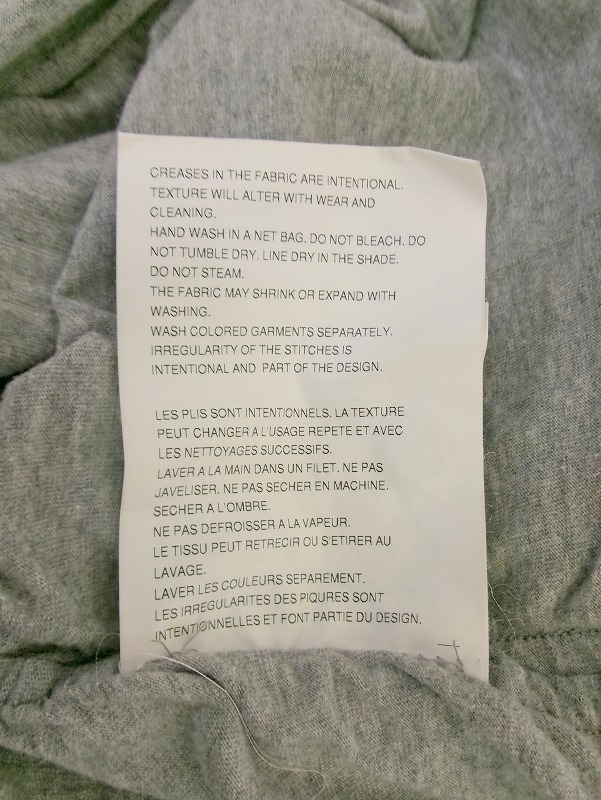 CREASES IN THE FABRIC ARE INTENTIONAL.
TEXTURE WILL ALTER WITH WEAR AND
CLEANING.
HAND WASH IN A NET BAG. DO NOT BLEACH. DO
NOT TUMBLE DRY. LINE DRY IN THE SHADE.
DO NOT STEAM.
THE FABRIC MAY SHRINK OR EXPAND WITH
WASHING.
WASH COLORED GARMENTS SEPARATELY.
IRREGULARITY OF THE STITCHES IS
INTENTIONAL AND PART OF THE DESIGN.
LES PLIS SONT INTENTIONNELS. LA TEXTURE
PEUT CHANGER A L'USAGE REPETE ET AVEC
LES NETTOYAGES SUCCESSIFS.
LAVER A LA MAIN DANS UN FILET. NE PAS
JAVELISER. NE PAS SECHER EN MACHINE.
SECHER A L'OMBRE.
NE PAS DEFROISSER A LA VAPEUR.
LE TISSU PEUT RETRECIR OU S'ETIRER AU
LAVAGE.
LAVER LES COULEURS SEPAREMENT.
LES IRREGULARITES DES PIQURES SONT
INTENTIONNELLES ET FONT PARTIE DU DESIGN.